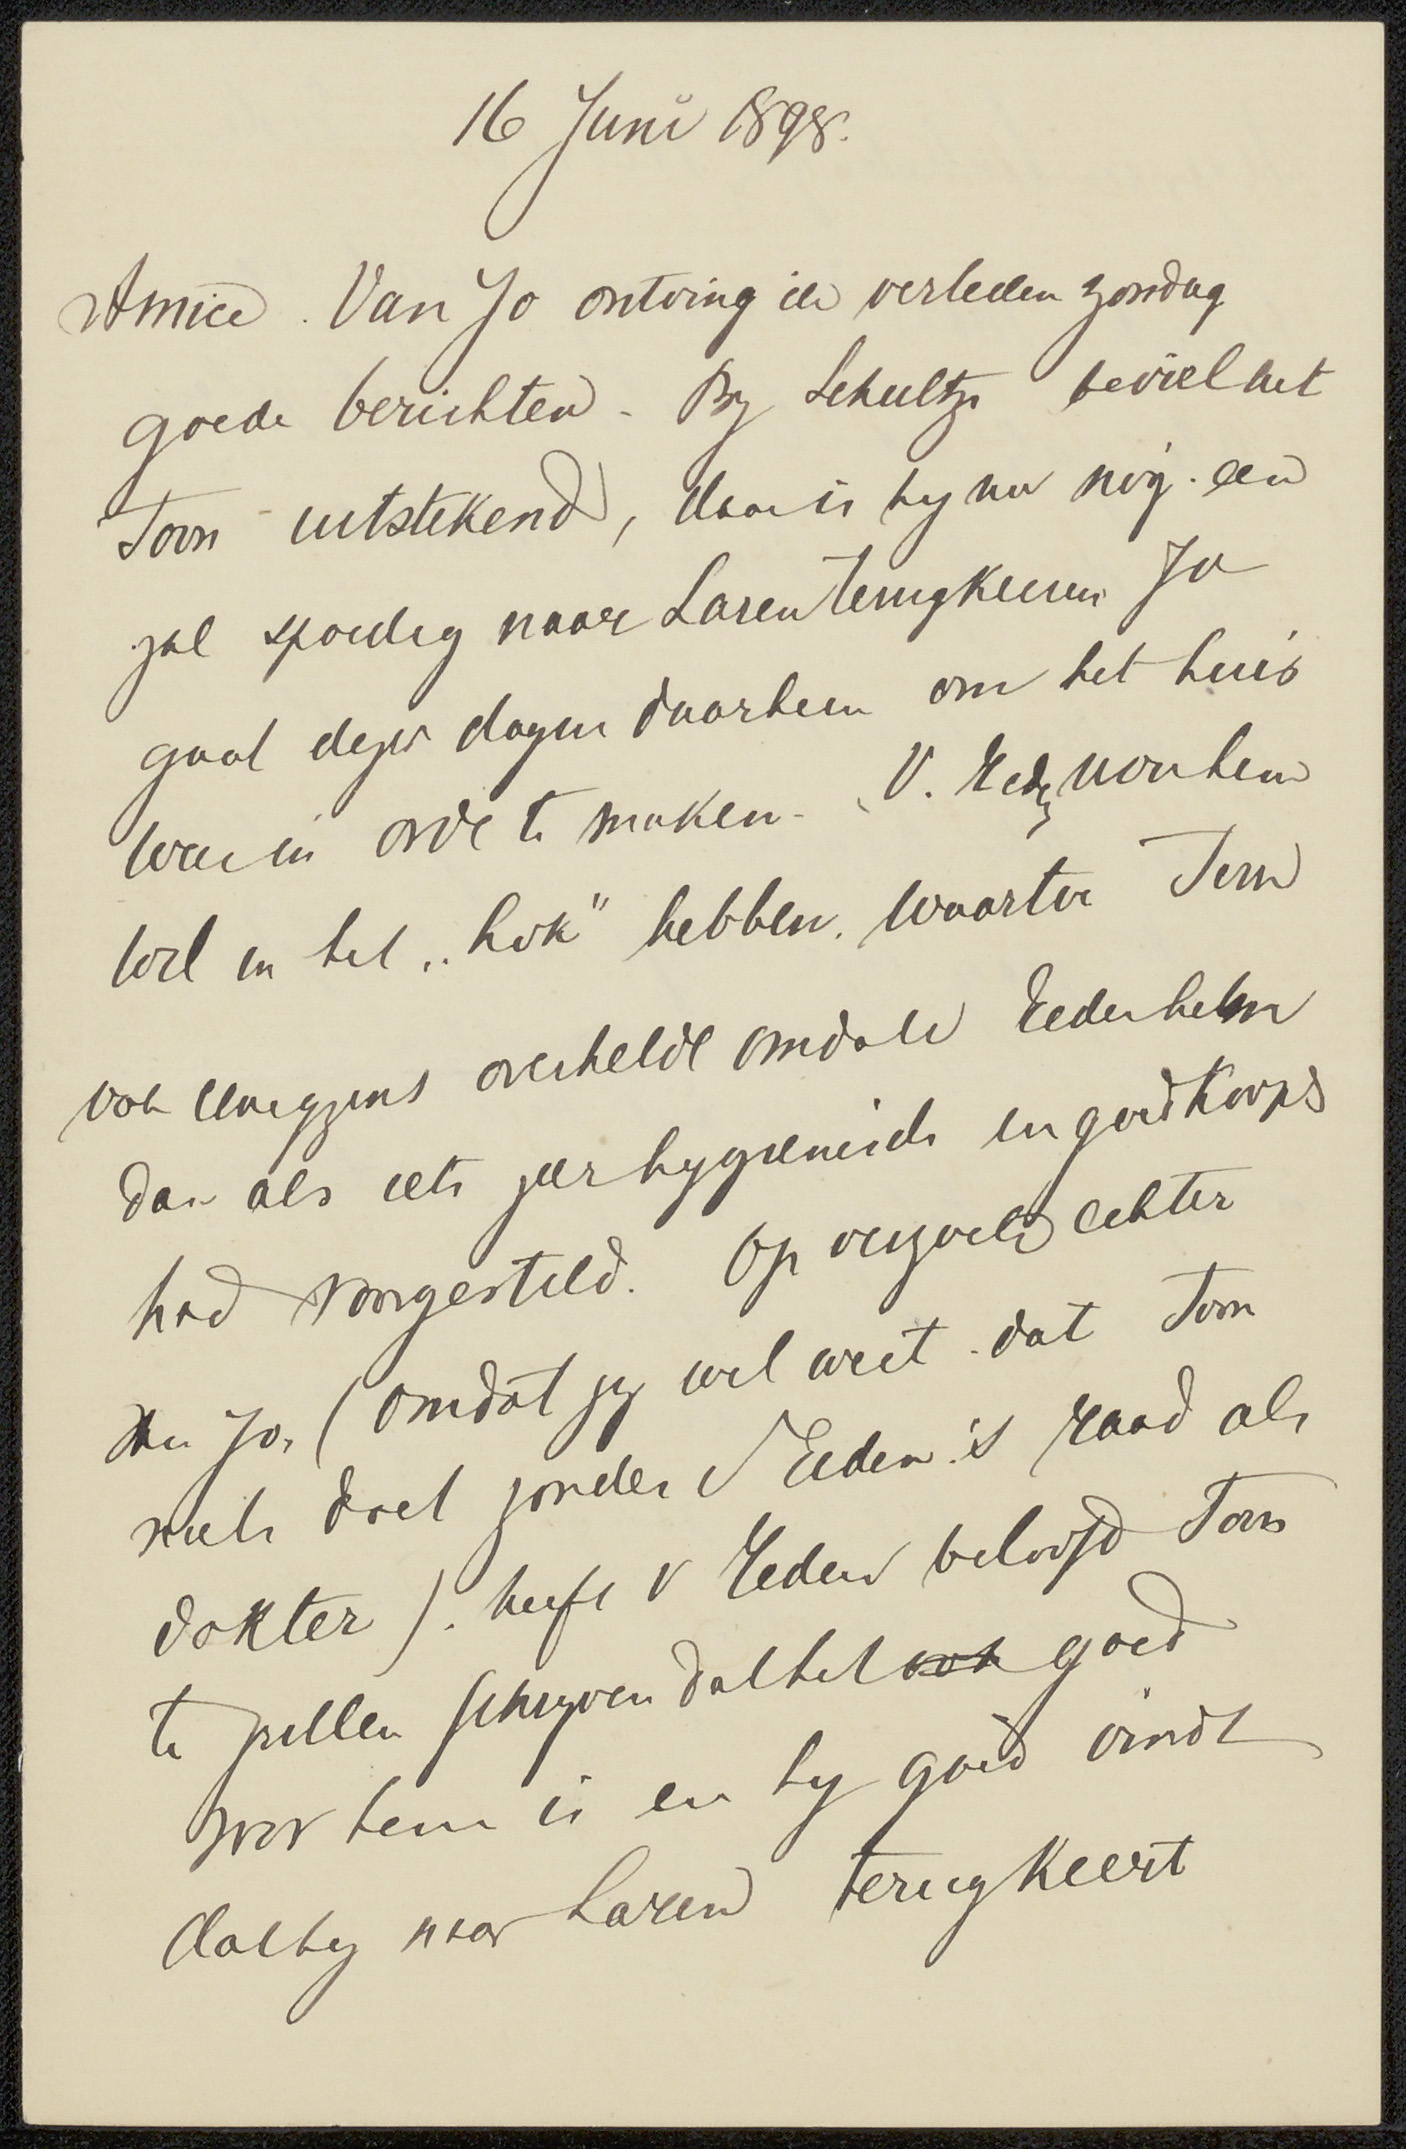 16 Juni 1898.
Amice. Van Jo ontving ik verleden zondag
goede berichten. By Schultze beviel het
Toon uitstekend, daar is hy nu nog. en
zal spoedig naar Laren terugkeeren Jo
gaat dezer dagen daarheen om het huis
weer in orde te maken. V. Eeden wou hem
wel in het „hok" hebben, waartoe Toon
ook eenigzins overhelde omdat Eeden het hem
dan als iets zeer hygienisch en goedkoops
had voorgesteld. Op verzoek echter
van Jo, (omdat zy wel weet dat Toon
niets doet zonder V Eeden's raad als
dokter). heeft V Eeden beloofd Toon
te zullen schryven dat het ook goed
voor hem is en hy goed vindt
dat hy naar Laren terugkeert